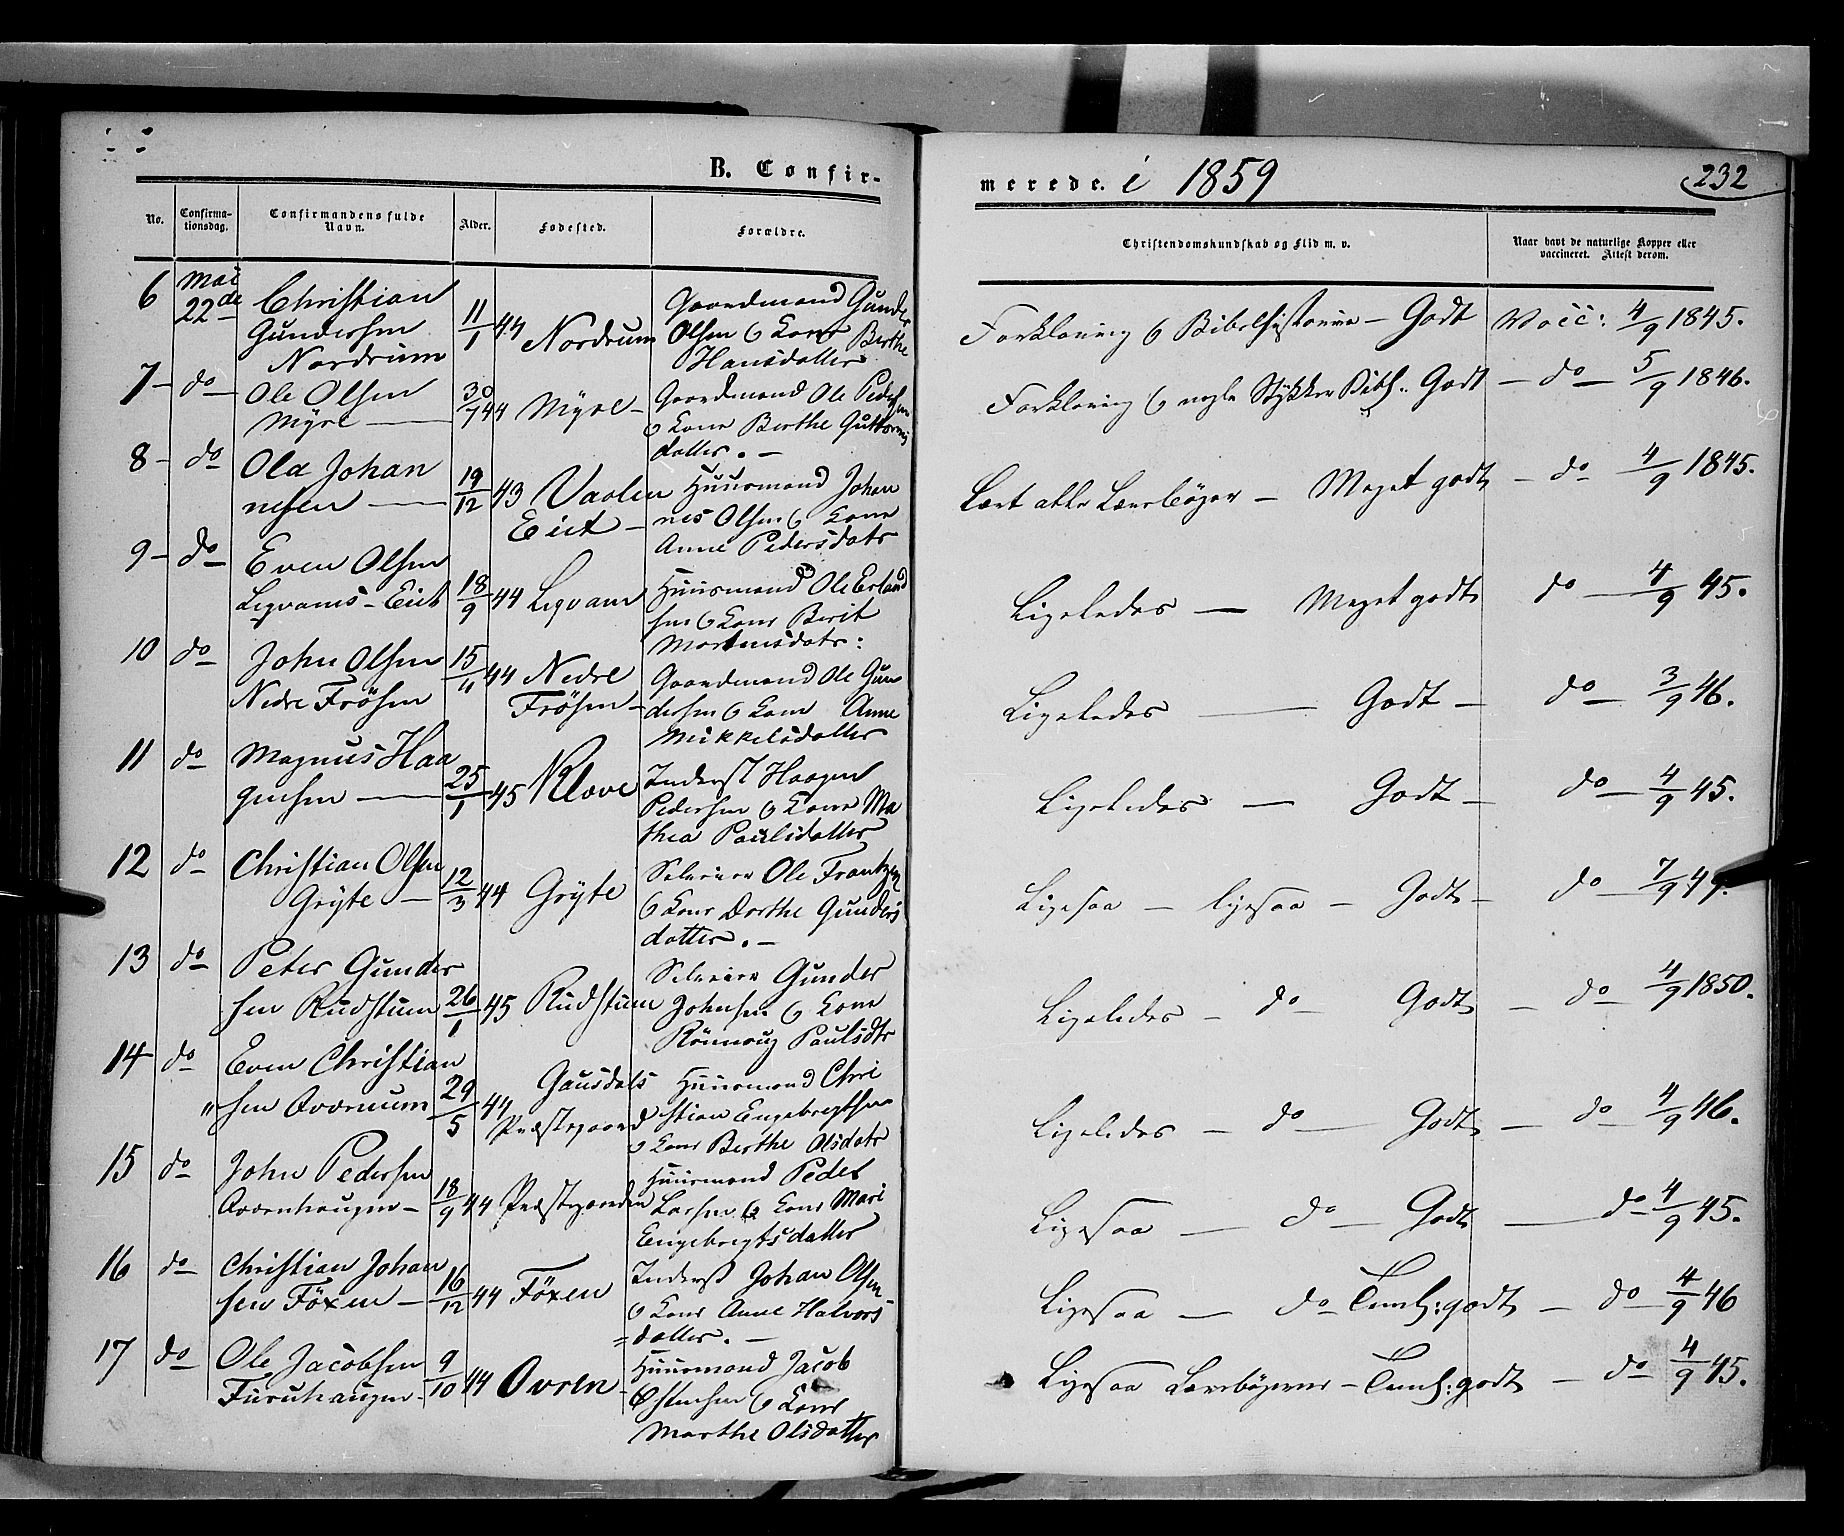 B. Confir-
merede. i 1859
232
No.
Confirma-
tionsdag.
Confirmandens fulde
Navn.
Alder.
Fødested.
Forældre.
Christendomskundskab og Flid m. v.
Naar havt de naturlige Kopper eller
vaccineret. Attest derom.
6 Mai 22de Christian Gundersen Nordrum 11/1 44 Nordrum Gaardmand Gunder Olsen & Kone Berthe Hansdatter
Forklaring & Bibelhistorie – Godt Vacc: 4/9 1845.
7 – do – Ole Olsen Myre — 30/7 44 Myre – Gaardmand Ole Pedersen & Kone Berthe Guttormsdatter. –
Forklaring & nogle Stykker Bibh: Godt – do – 5/9 1846.
8 – do Ola Johannesen — 19/12 43 Vaalen Eiet – Huusmand Johannes Olsen & Kone Anne Pedersdatr
Læst alle Lærebøger – Meget godt – do 4/9 1845.
9 – do Even Olsen Legvams-Eiet 18/9 44 Legvam Huusmand Ole Erlandsen & Kone Berit Mortensdatr:
Ligeledes — Meget godt do — 4/9 45.
10 do John Olsen Nedre Frösen 15/11 44 Nedre Frösen – Gaardmand Ole Gundersen & Kone Anne Mikkelsdatter
Ligeledes — Godt – do – 3/9 46.
11 do Magnus Haagensen — 25/1 45 Klove Inderst Haagen Pedersen & Kone Mathea Paulsdatter
Ligeledes — Godt – do – 4/9 45.
12 do Christian Olsen Gryte – 12/3 44 Gryte Selveier Ole Frantzen & Kone Dorthe Gundersdatter. –
Ligesaa – ligesaa – Godt – do – 7/9
13 do Peter Gundersen Rudstuen 26/1 45 Rudstuen Selveier Gunder Johnsen & Kone Rönnoug Paulsdtr
Ligeledes – do Godt – do 4/9 1850.
14 – do Even Christiansen 29/5 44 Gausdals Præstegaard Huusmand Christian Engebregtsen & Kone Berthe Olsdatr
Ligeledes – do — Godt – do 4/9 46.
15 do John Pedersen 18/9 44 Præstegaarden Huusmand Peder Larsen & Kone Mari Engebregtsdatter
Ligesaa — do – Godt — do 4/9 45.
16 do Christian Johansen Föxen – 16/12 44 Föxen Inderst Johan Olsen & Kone Anne Halvorsdatter. –
Ligesaa — do Teml: godt – do 4/9 46
17 do Ole Jacobsen Furuhaugen – 9/10 44 Ovren – Huusmand Jacob Østensen & Kone Marthe Olsdatter
Ligesaa Lærebøgerne – Teml: godt – do 4/9 45.